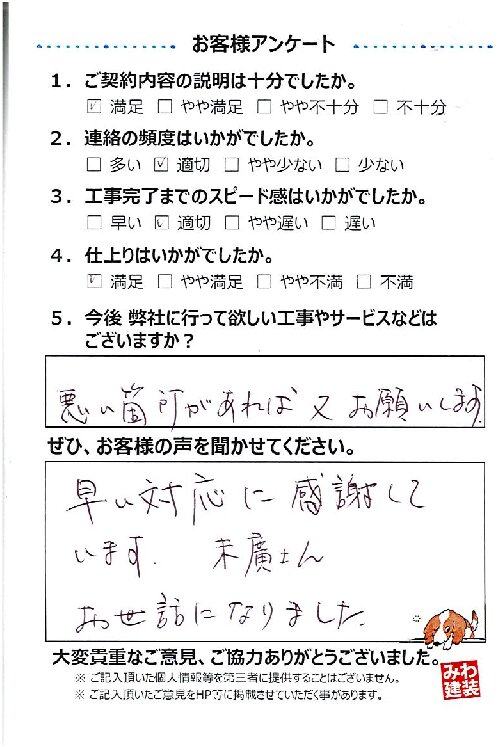 お客様アンケート
1．ご契約内容の説明は十分でしたか。
☑ 満足 □ やや満足 □ やや不十分 □ 不十分
2．連絡の頻度はいかがでしたか。
□ 多い ☑ 適切 □ やや少ない □ 少ない
3．工事完了までのスピード感はいかがでしたか。
□ 早い ☑ 適切 □ やや遅い □ 遅い
4．仕上りはいかがでしたか。
☑ 満足 □ やや満足 □ やや不満 □ 不満
5．今後 弊社に行って欲しい工事やサービスなどは
ございますか？
悪い箇所があれば又お願いします。
ぜひ、お客様の声を聞かせてください。
早い対応に感謝して
います。 末廣さん
お世話になりました。
大変貴重なご意見、ご協力ありがとうございました。
※ ご記入頂いた個人情報等を第三者に提供することはございません。
※ ご記入頂いたご意見をHP等に掲載させていただく事があります。
みわ
建装